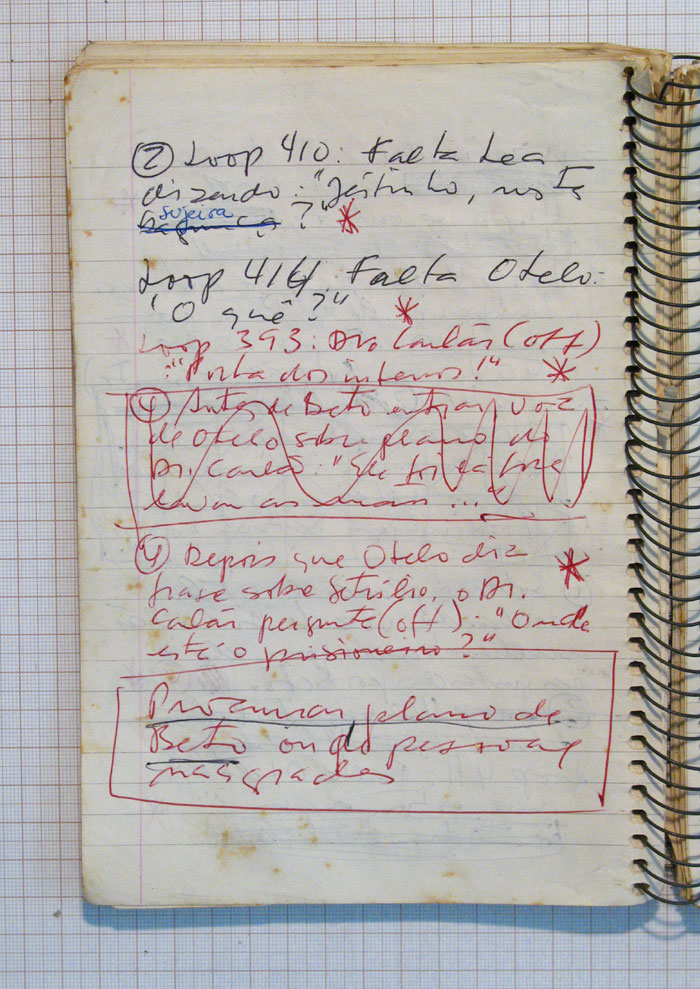 ② Loop 410: Falta Lea
dizendo: "Jeitinho, nos
sujeira
?" *
Loop 414: Falta Otelo:
"O quê?" *
Loop 393: Dr. Carlão (off)
: "Porta dos infernos!" *
④ Antes de Beto entrar voz
de Otelo sobre plano do
Dr. Carlão: "Ele foi
lavar as mãos..."
④ Depois que Otelo diz *
frase sobre Getúlio, o Dr.
Carlão pergunta (off): "Onde
está o prisioneiro?"
Procurar plano de
Beto onde